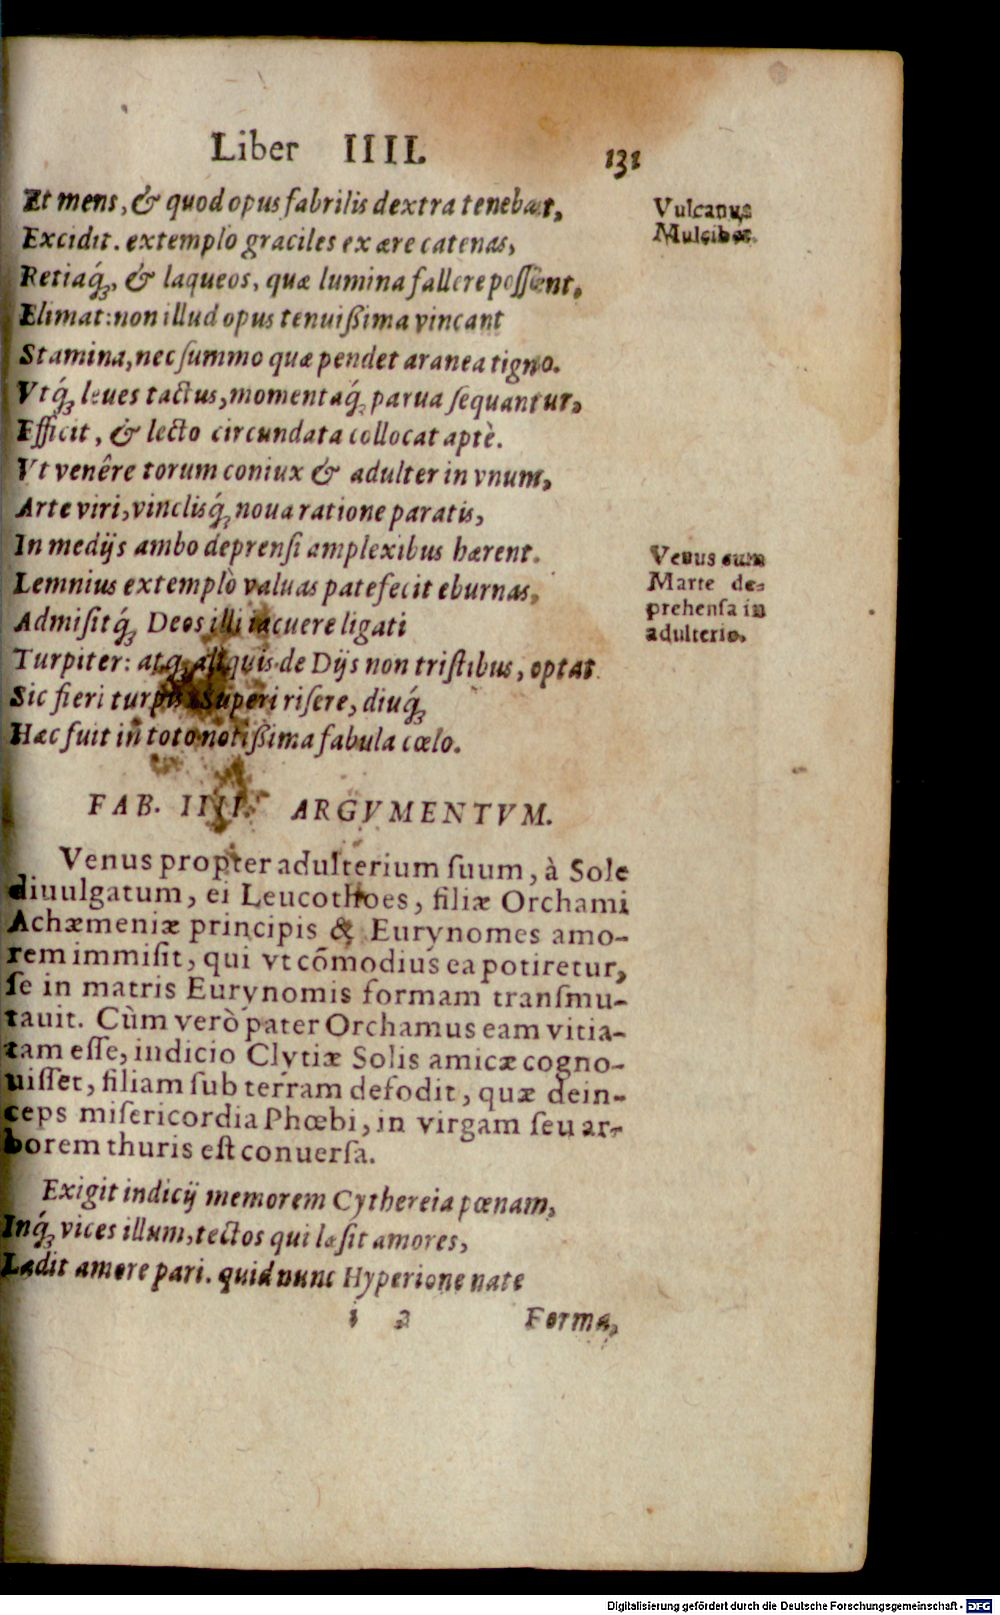 Liber IIII.
131
Et mens, & quod opus fabrilis dextra tenebat,
Excidit. extemplo graciles ex ære catenas,
Retiaq́;, & laqueos, quæ lumina fallere possent,
Elimat: non illud opus tenuißima vincant
Stamina, nec summo quæ pendet aranea tigno.
Vtq́; leues tactus, momentaq́; parua sequantur,
Efficit, & lecto circundata collocat aptè.
Vt venêre torum coniux & adulter in vnum,
Arte viri, vinclisq́; noua ratione paratis,
In medijs ambo deprensi amplexibus hærent.
Lemnius extemplò valuas patefecit eburnas,
Admisitq́; Deos illi iacuere ligati
Turpiter: atq; aliquis de Dijs non tristibus, optat
Sic fieri turpis: Superi risere, diuq́;
Hæc fuit in toto notißima fabula cœlo.
Vulcanus
Mulciber.
Venus cum
Marte de-
prehensa in
adulterio.
FAB. IIII. ARGVMENTVM.
Venus propter adulterium suum, à Sole
diuulgatum, ei Leucothoes, filiæ Orchami
Achæmeniæ principis & Eurynomes amo-
rem immisit, qui vt cõmodius ea potiretur,
se in matris Eurynomis formam transmu-
tauit. Cùm verò pater Orchamus eam vitia-
tam esse, indicio Clytiæ Solis amicæ cogno-
uisset, filiam sub terram defodit, quæ dein-
ceps misericordia Phœbi, in virgam seu ar-
borem thuris est conuersa.
Exigit indicij memorem Cythereia pœnam,
Inq́; vices illum, tectos qui læsit amores,
Lædit amore pari. quid nunc Hyperione nate
i 2
Forma,
Digitalisierung gefördert durch die Deutsche Forschungsgemeinschaft - DFG